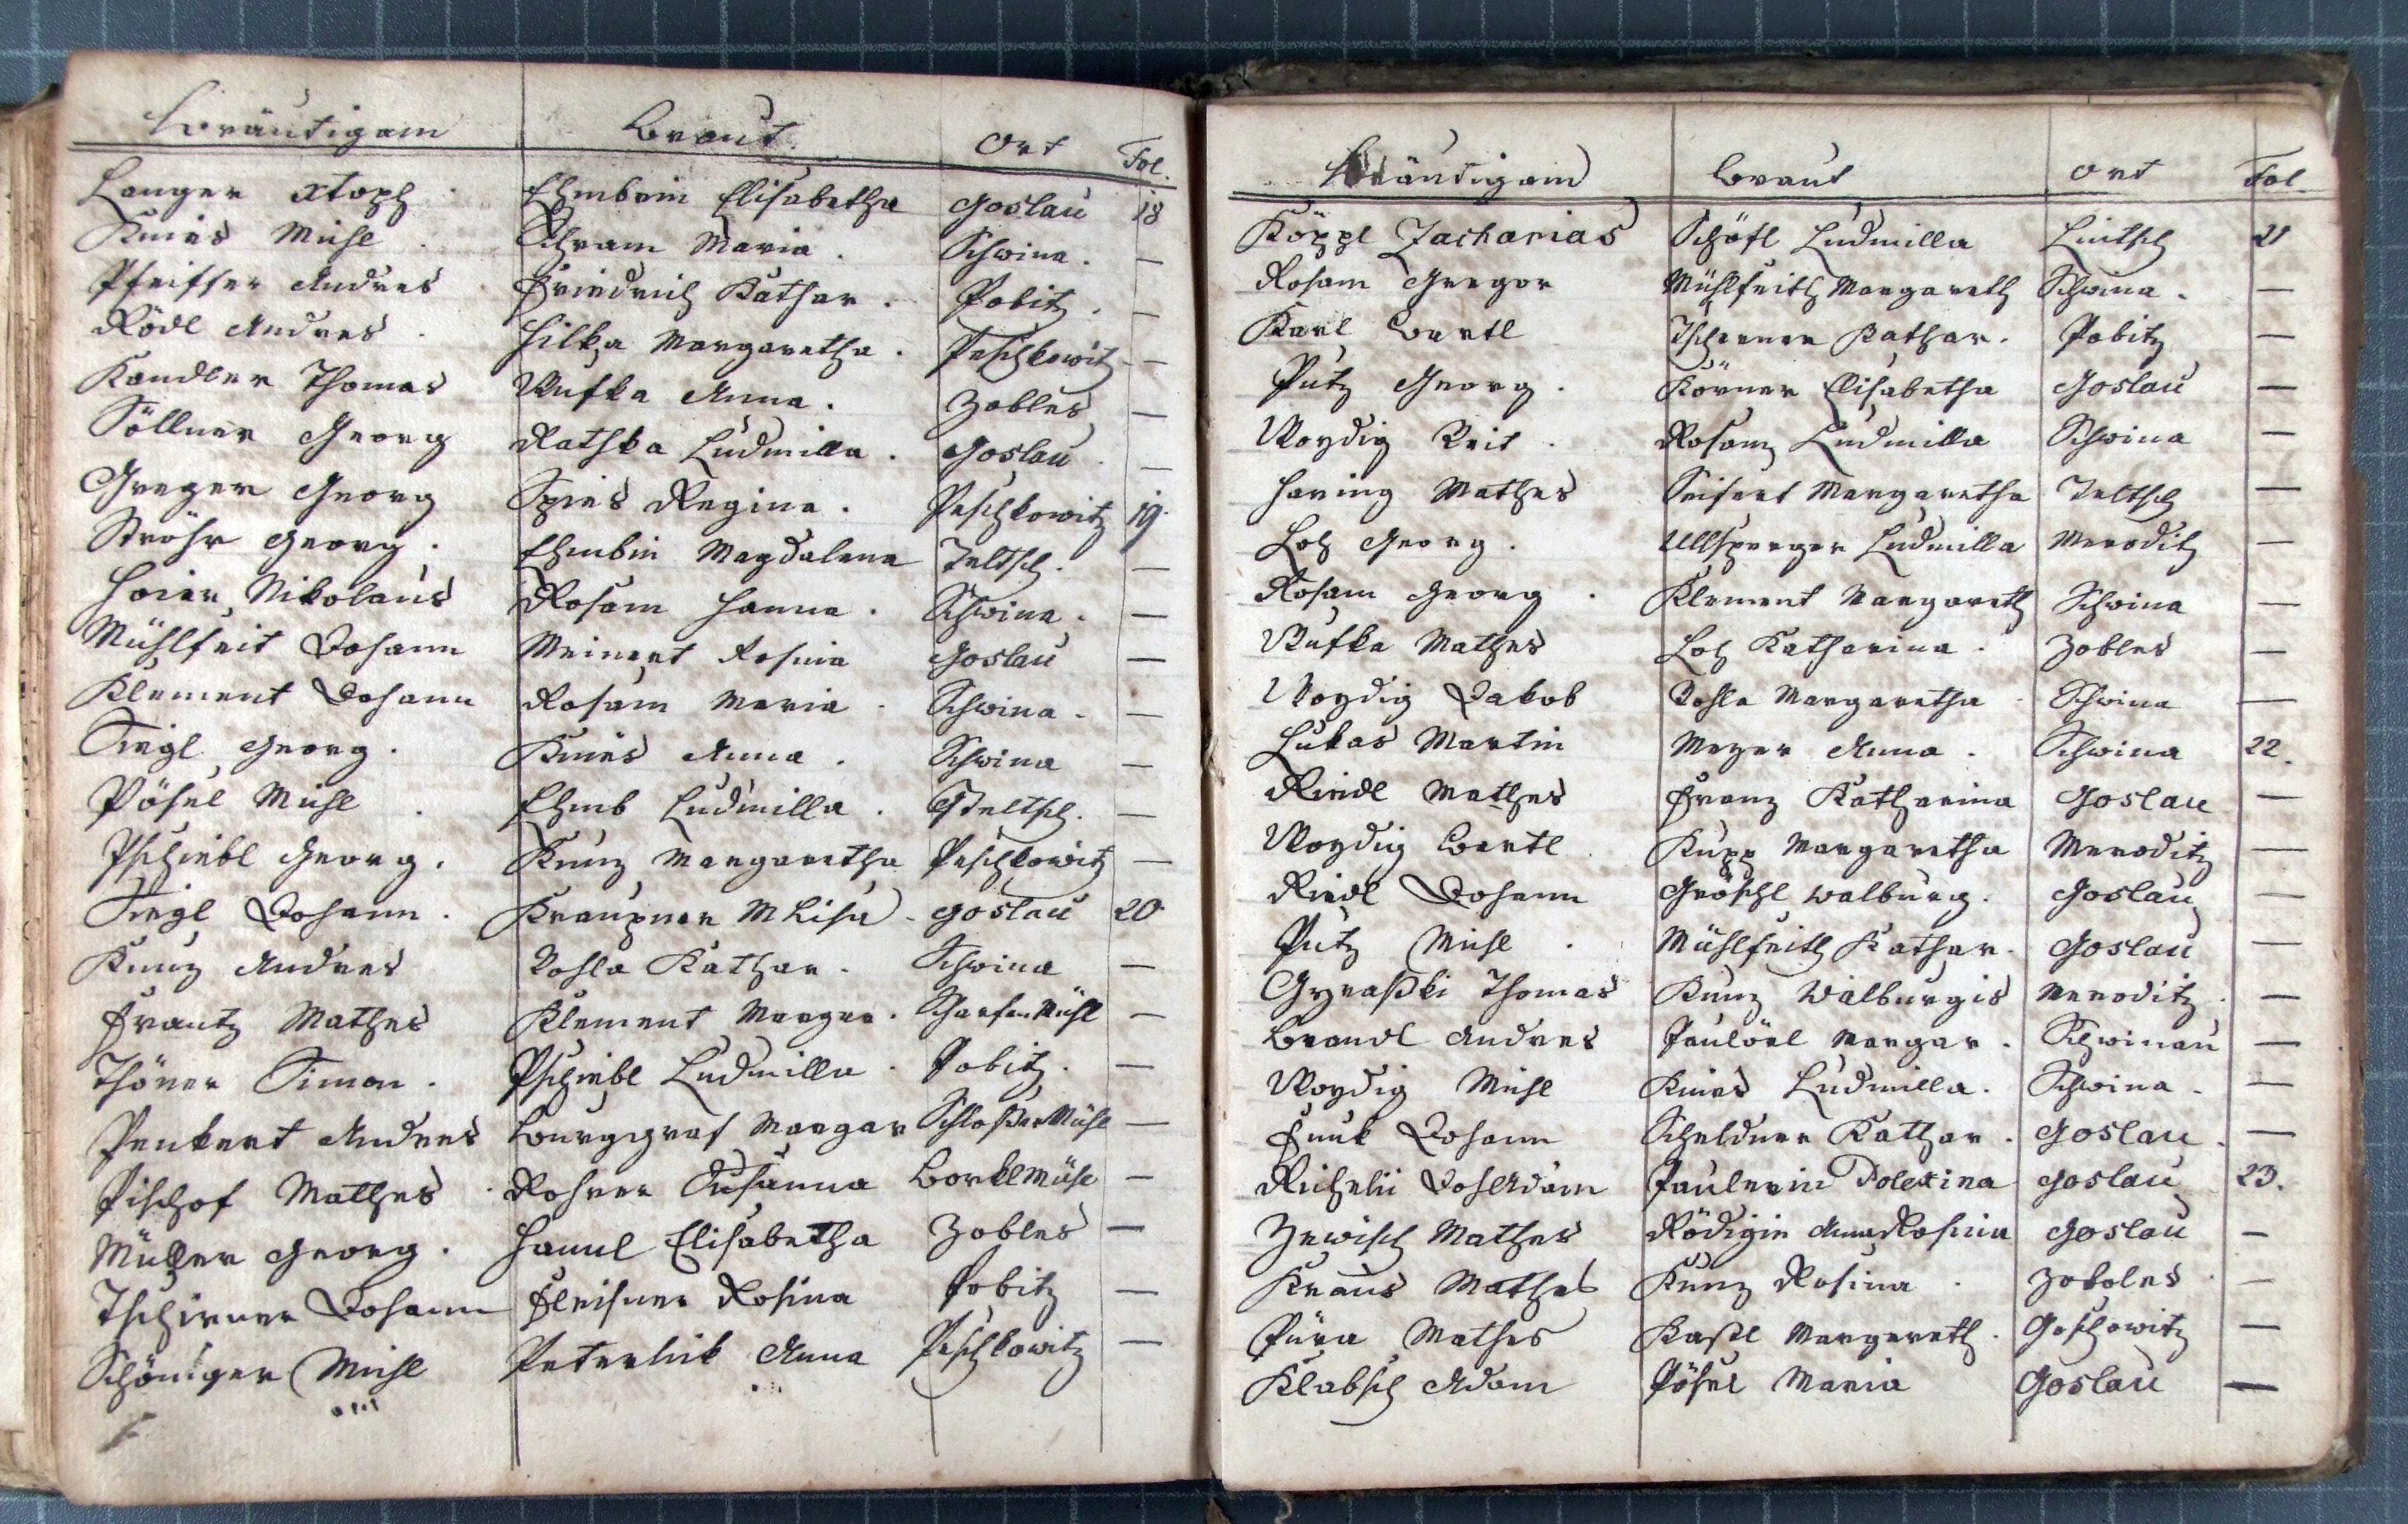 Bräutigam Braut Ort Fol.
Langer Xtoph . Ehmbrin Elisabetha Goslau 18
Knies Michl . Schram Maria . Schwina . —
Pfeiffer Andres . Friedrich Kathar . Pobitz . —
Rödl Andres . Hilka Margaretha . Peschkowitz —
Kandler Thomas Wufka Anna . Zobles —
Söllner Georg Rathska Ludmilla . Goslau . —
Greger Georg Spies Regina . Peschkowitz 19.
Ströhr Georg . Ehmbin Magdalena Jeltsch . —
Hoier Nikolaus Rosam Hanna . Schwina . —
Mühlfeit Johann Meinert Rosina Goslau —
Klement Johann Rosam Maria . Schwina . —
Siegl Georg . Knies Anna . Schwina —
Pösel Michl . Ehmb Ludmilla . Jeltsch . —
Pschiebl Georg . Kunz Margaretha Peschkowitz —
Siegl Johann . Kraupner M Lisa . Goslau 20
Kunz Andres Pohla Kathar . Schwina —
Frantz Mathes Klement Margar . Scharfen Mühl —
Thöner Simon . Pschiebl Ludmilla . Pobitz . —
Penkert Andres Burggraf Margar Schloßer Mühl —
Pischof Mathes . Rohrer Susanna Borkl Mühl —
Müller Georg . Hamel Elisabetha Zobles —
Tschirner Johann Fleisner Rosina Pobitz —
Schöniger Michl Peterlik Anna Peschkowitz —
Bräutigam Braut Ort Fol.
Köppl Zacharias Schöfl Ludmilla Lintsch 21
Rosam Gregor Mühlfeith Margareth Schwina . —
Karl Bartl Tscherner Kathar . Pobitz —
Putz Georg . Körner Elisabetha Goslau —
Woydig Veit . Rosam Ludmilla Schwina —
Haring Mathes Seifert Margaretha Jeltsch —
Loh Georg . Ullsperger Ludmilla Meroditz —
Rosam Georg . Klement Margareth Schwina —
Wufka Mathes Loh Katharina . Zobles —
Woydig Jakob Pohla Margaretha . Schwina —
Lukas Martin Meyer Anna . Schwina 22.
Riedl Mathes Franz Katharina Goslau —
Woydig Bartl Kupp Margaretha Meroditz —
Riedl Johann Gröschl Walburg . Goslau —
Putz Michl . Mühlfeith Kathar . Goslau —
Thomas Kunz Walburgis Meroditz . —
Brandl Andres Paulörl Margar . Schwinau —
Woydig Michl Knies Ludmilla . Schwina . —
Funk Johann Scheldner Kathar . Goslau . —
Joh Adam Paulerin Polexina Goslau 23.
Zewisch Mathes Rödigin Anna Rosina Goslau —
Kraus Mathes Kunz Rosina . Zoboles . —
Püra Mathes Kaßl Margareth . Goschowitz —
Klabsch Adam Pösel Maria Goslau —